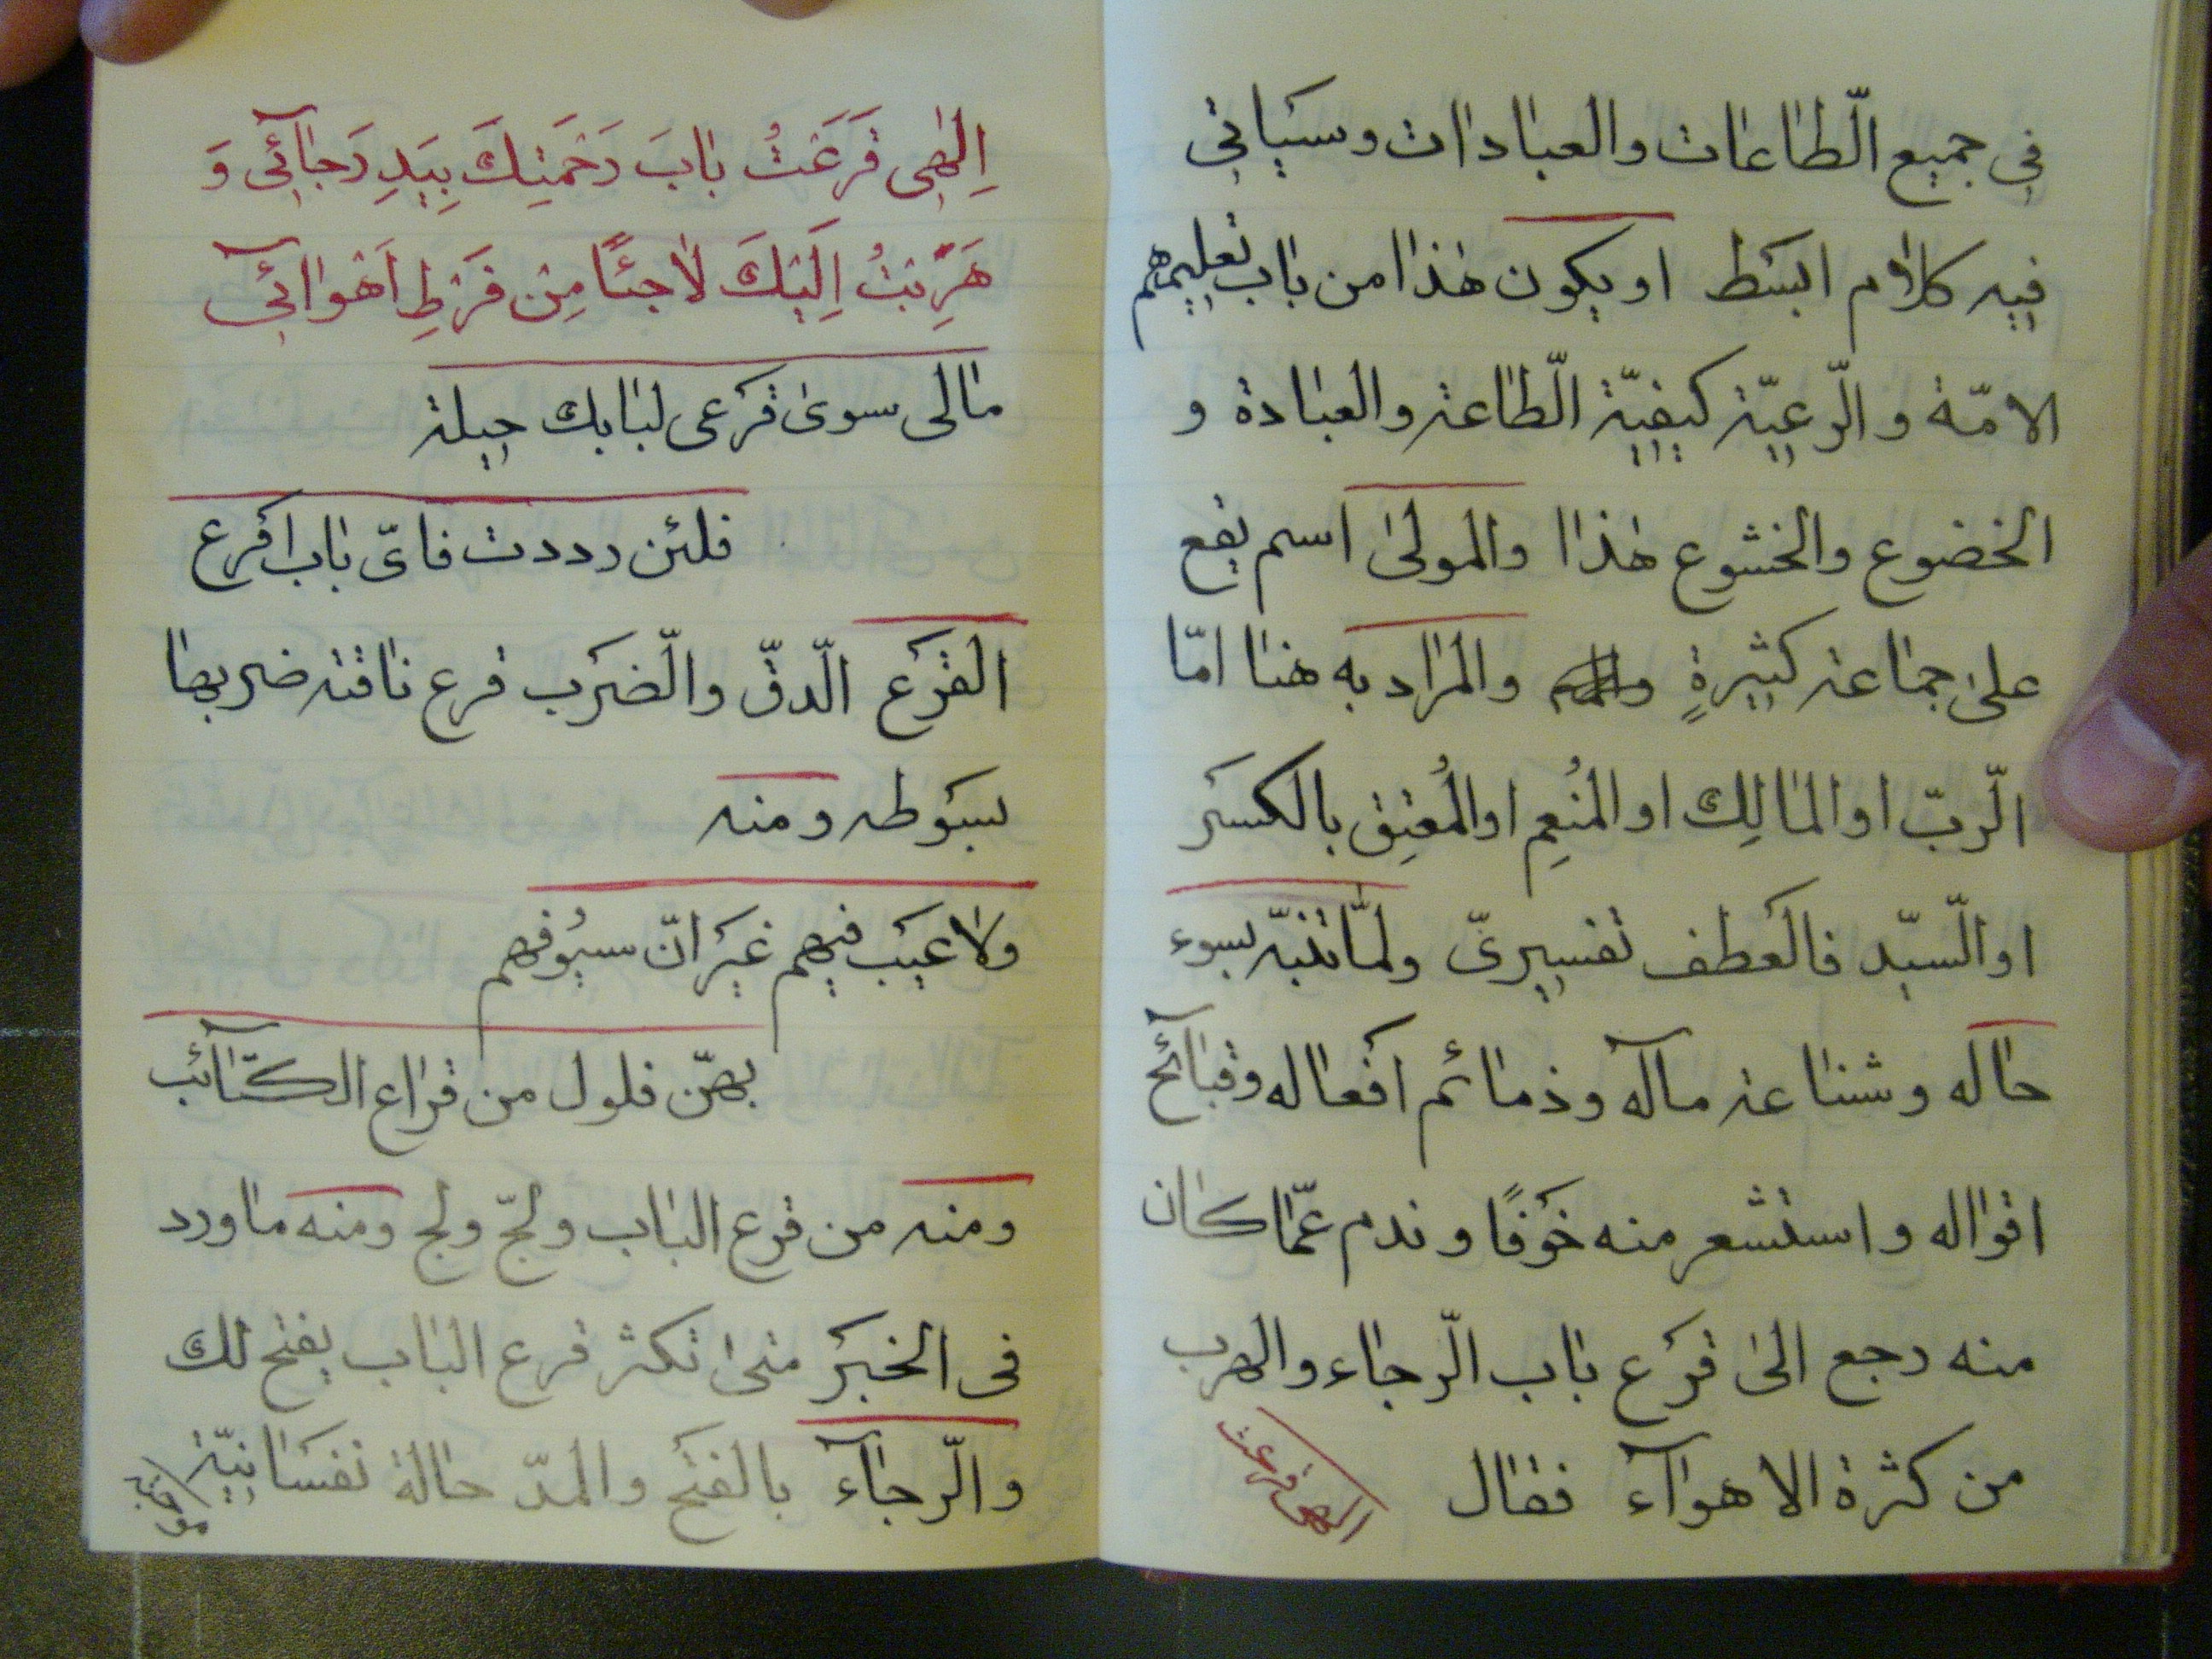 في جميع الّطاعات والعبادات وسيأتي
فيه كلام ابسط او يكون هذا من باب تعليمهم
الامّة والّرعيّة كيفيّة الّطاعة والعبادة و
الخضوع والخشوع هذا والمولى اسم يقع
على جماعة كثيرةٍ والمراد به هنا امّا
الّربّ او المالِك او المُنعِم او المُعتِق بالكسر
او الّسيّد فالعطف تفسيرىّ ولمّا تنبّه بسوء
حاله وشناعة مآله وذمائم افعاله وقبآئح
اقواله واستشعر منه خوفًا وندم عمّا كان
منه رجع الى قرع باب الّرجاء والهرب
من كثرة الاهوآء فقال
الهى قرعت
اِلهٰى قَرَعْتُ بابَ رَحْمَتِكَ بِيَدِ رَجآئى وَ
هَرَبْتُ اِلَيْكَ لاجئًا مِنْ فَرْطِ اَهْوآئى
مالى سوى قرعى لبابك حيلة
فلئن رددت فاىّ باب اقرع
القرع الّدقّ والّضرب قرع ناقته ضربها
بسوطه ومنه
ولا عيب فيهم غير انّ سيُوفهم
بهنّ فلول من قراع الكتآئب
ومنه من قرع الباب ولجّ ولج ومنه ما ورد
فى الخبر متى تكثر قرع الباب يفتح لك
والّرجآء بالفتح والمدّ حالة نفسانيّة
موجبة